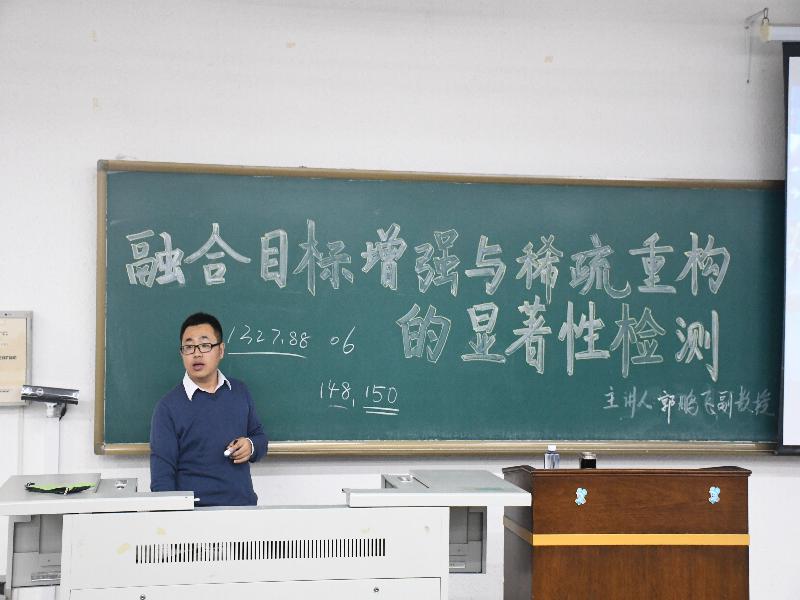 融合目标增强与稀疏重构
的显著性检测
1327.88 06
148, 150
主讲人 郭鹏飞副教授